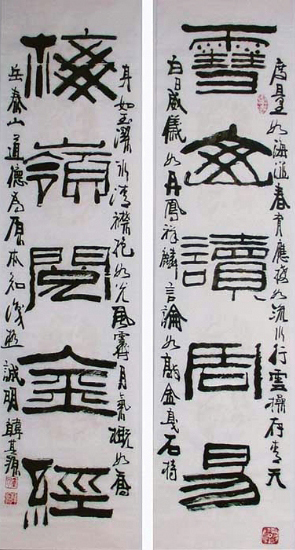 度量如海涵春育應接如流水行雲操存青天
雪讀周易
白日威儀如丹鳳祥麟言論如敲金戛石持
身如玉潔冰清襟抱如光風霽月氣概如喬
梅嶺閱金經
岳泰山道德為原本知誠明韓其源